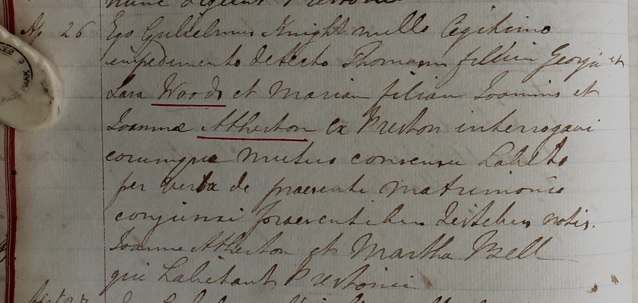 Ap 26 Ego Gulielmus Knight nullo legitimo
impedimento detecto Thomam filium Georgii et
Sara Woods et Mariam filiam Joannis et
Joannæ Atherton ex Preston interrogavi
eorumque mutuo consensu habito
per verba de praesenti matrimonio
conjunxi praesentibus testibus notis.
Joanne Atherton et Martha Bell
qui habitant Prestonii